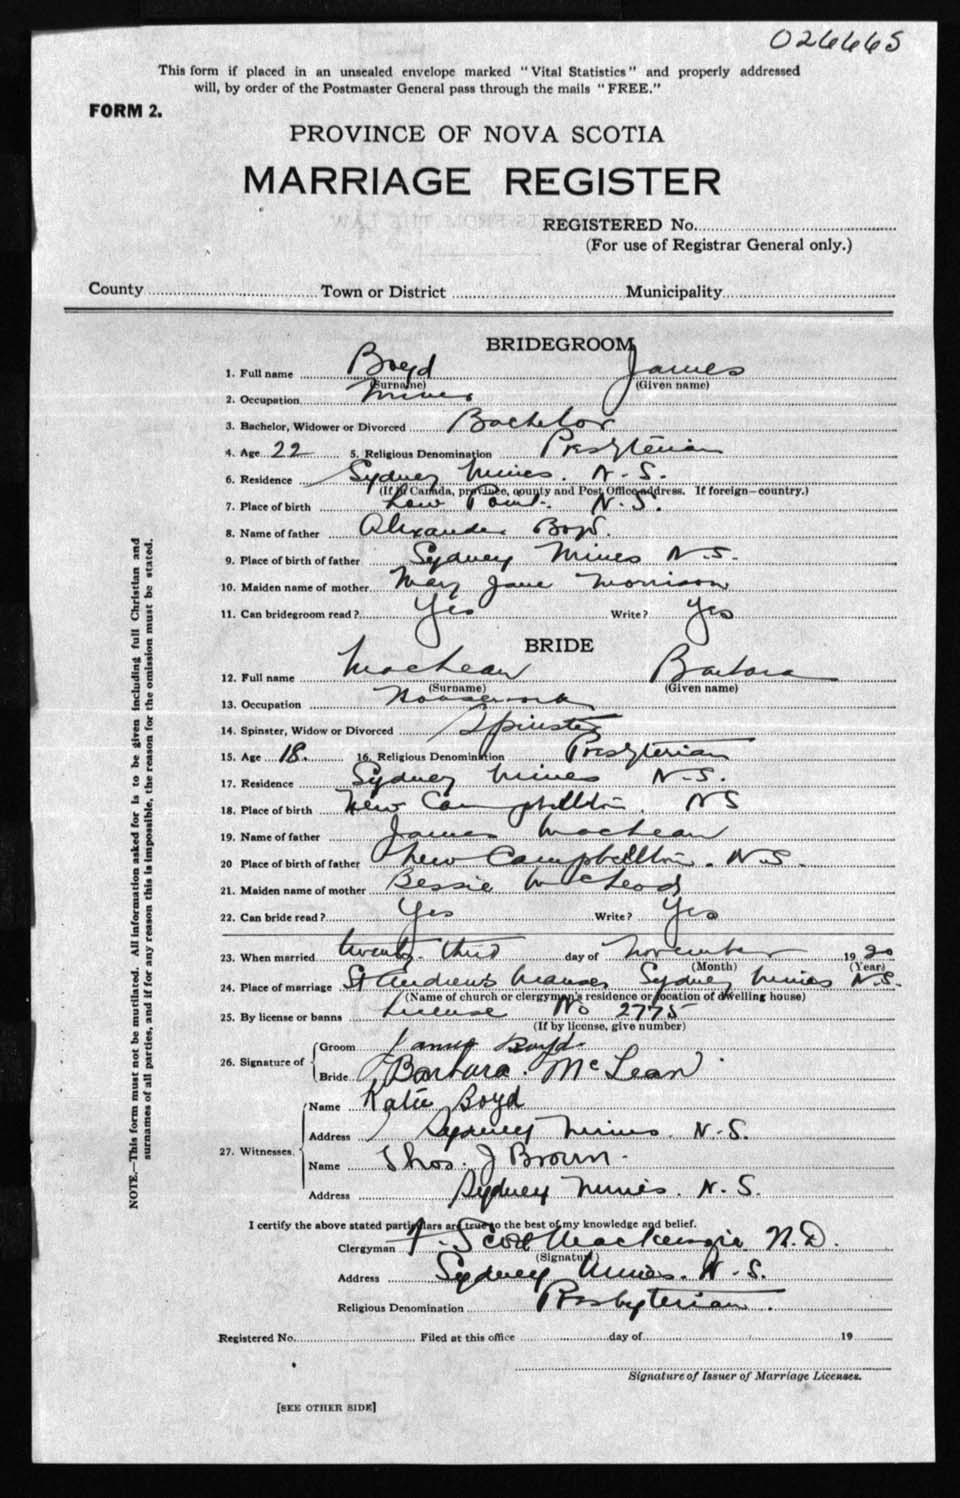 026665
This form if placed in an unsealed envelope marked "Vital Statistics" and properly addressed
will, by order of the Postmaster General pass through the mails "FREE."
FORM 2.
PROVINCE OF NOVA SCOTIA
MARRIAGE REGISTER
REGISTERED No.
(For use of Registrar General only.)
County Town or District Municipality
BRIDEGROOM
1. Full name Boyd James
(Surname) (Given name)
2. Occupation Miner
3. Bachelor, Widower or Divorced Bachelor
4. Age 22 5. Religious Denomination Presbyterian
6. Residence Sydney Mines. N.S.
(If in Canada, province, county and Post Office address. If foreign—country.)
7. Place of birth Low Point. N.S.
8. Name of father Alexander Boyd.
9. Place of birth of father Sydney Mines N.S.
10. Maiden name of mother Mary Jane Morrison
11. Can bridegroom read? Yes Write? Yes
BRIDE
12. Full name MacLean Barbara
(Surname) (Given name)
13. Occupation Housework
14. Spinster, Widow or Divorced Spinster
15. Age 18. 16. Religious Denomination Presbyterian
17. Residence Sydney Mines N.S.
18. Place of birth New Campbellton. NS
19. Name of father James MacLean
20 Place of birth of father New Campbellton. N.S.
21. Maiden name of mother Bessie McLeod
22. Can bride read? Yes Write? Yes
23. When married twenty third day of November 1920
(Month) (Year)
24. Place of marriage St Andrew's Manse, Sydney Mines N.S.
(Name of church or clergyman's residence or location of dwelling house)
25. By license or banns License No 2775
(If by license, give number)
26. Signature of Groom James Boyd
Bride Barbara McLean
27. Witnesses. Name Katie Boyd
Address Sydney Mines. N.S.
Name Thos. J Brown.
Address Sydney Mines. N.S.
I certify the above stated particulars are true to the best of my knowledge and belief.
Clergyman Scott Mackenzie
(Signature)
Address Sydney Mines. N.S.
Religious Denomination Presbyterian.
Registered No. Filed at this office day of 19
Signature of Issuer of Marriage Licenses.
[SEE OTHER SIDE]
NOTE.—This form must not be mutilated. All information asked for is to be given including full Christian and
surnames of all parties, and if for any reason this is impossible, the reason for the omission must be stated.